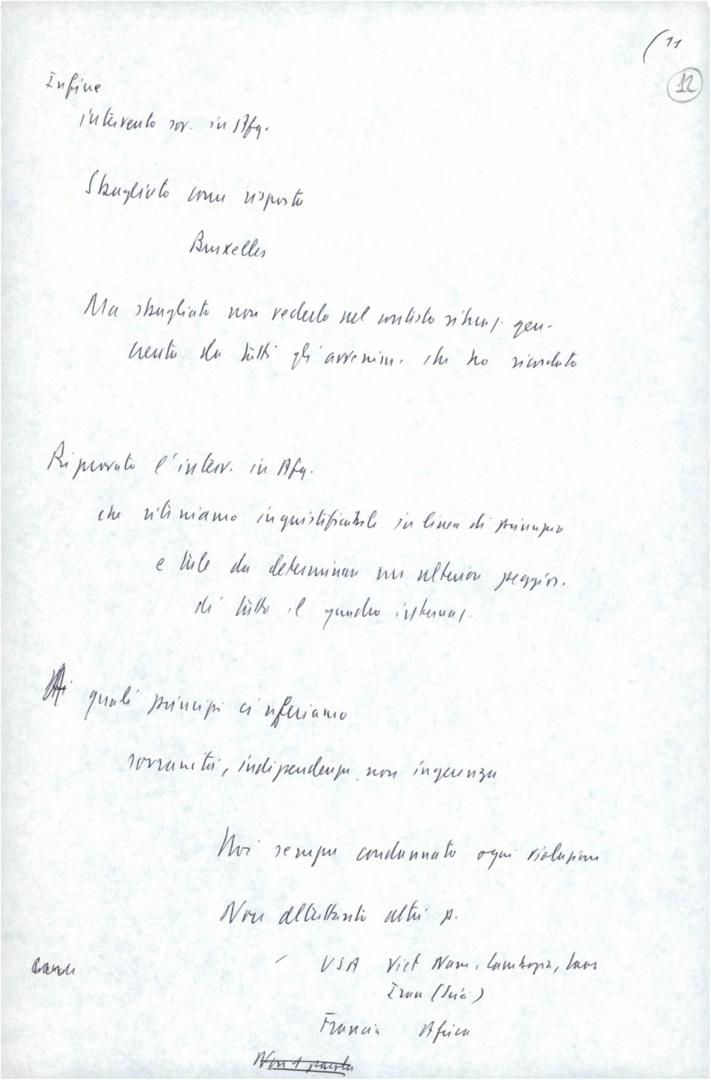 (11
12
Infine
intervento sov. in Afg.
Sbagliato come risposta
Bruxelles
Ma sbagliato non vederlo nel contesto
da tutti gli avvenim. che ho ricordato
Riprovato l'interv. in Afg.
che riteniamo ingiustificabile in linea di principio
e tale da determinare un ulteriore peggior.
di tutto il quadro internaz.
Ai quali principi ci riferiamo
sovranità, indipendenza, non ingerenza
Noi sempre condannato ogni violazione
Non altrettanto altri p.
USA Viet Nam, Cambogia, Laos
Iran (Scià)
Francia Africa